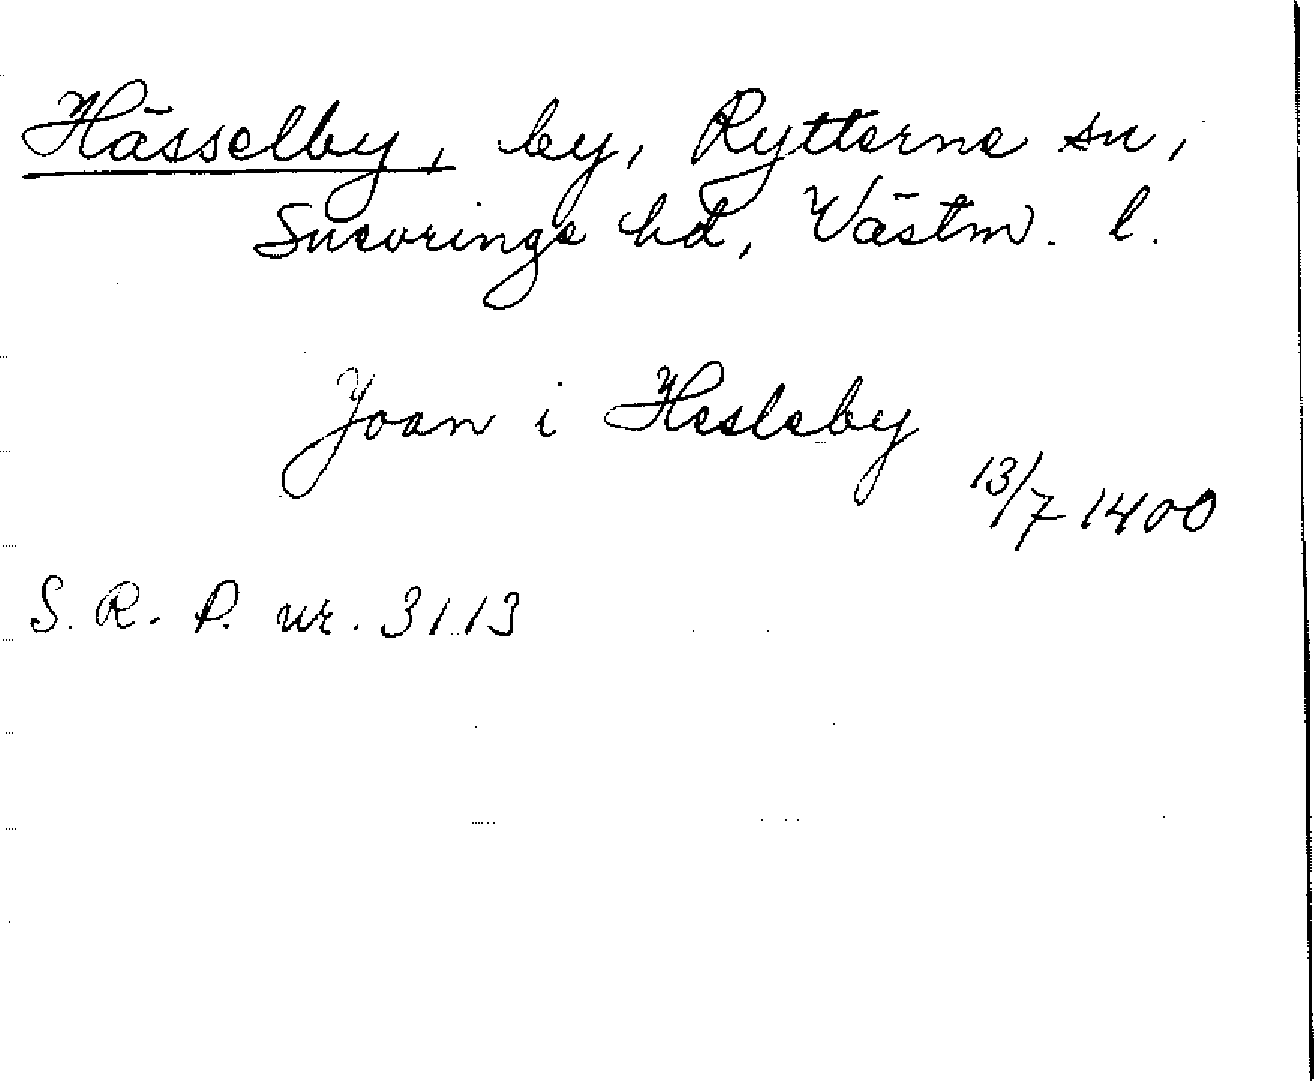 Hässelby, by, Rytterne sn,
Snevringe hd, Västm. l.
Joan i Hesleby
13/7 1400
S. R. P. nr. 3113